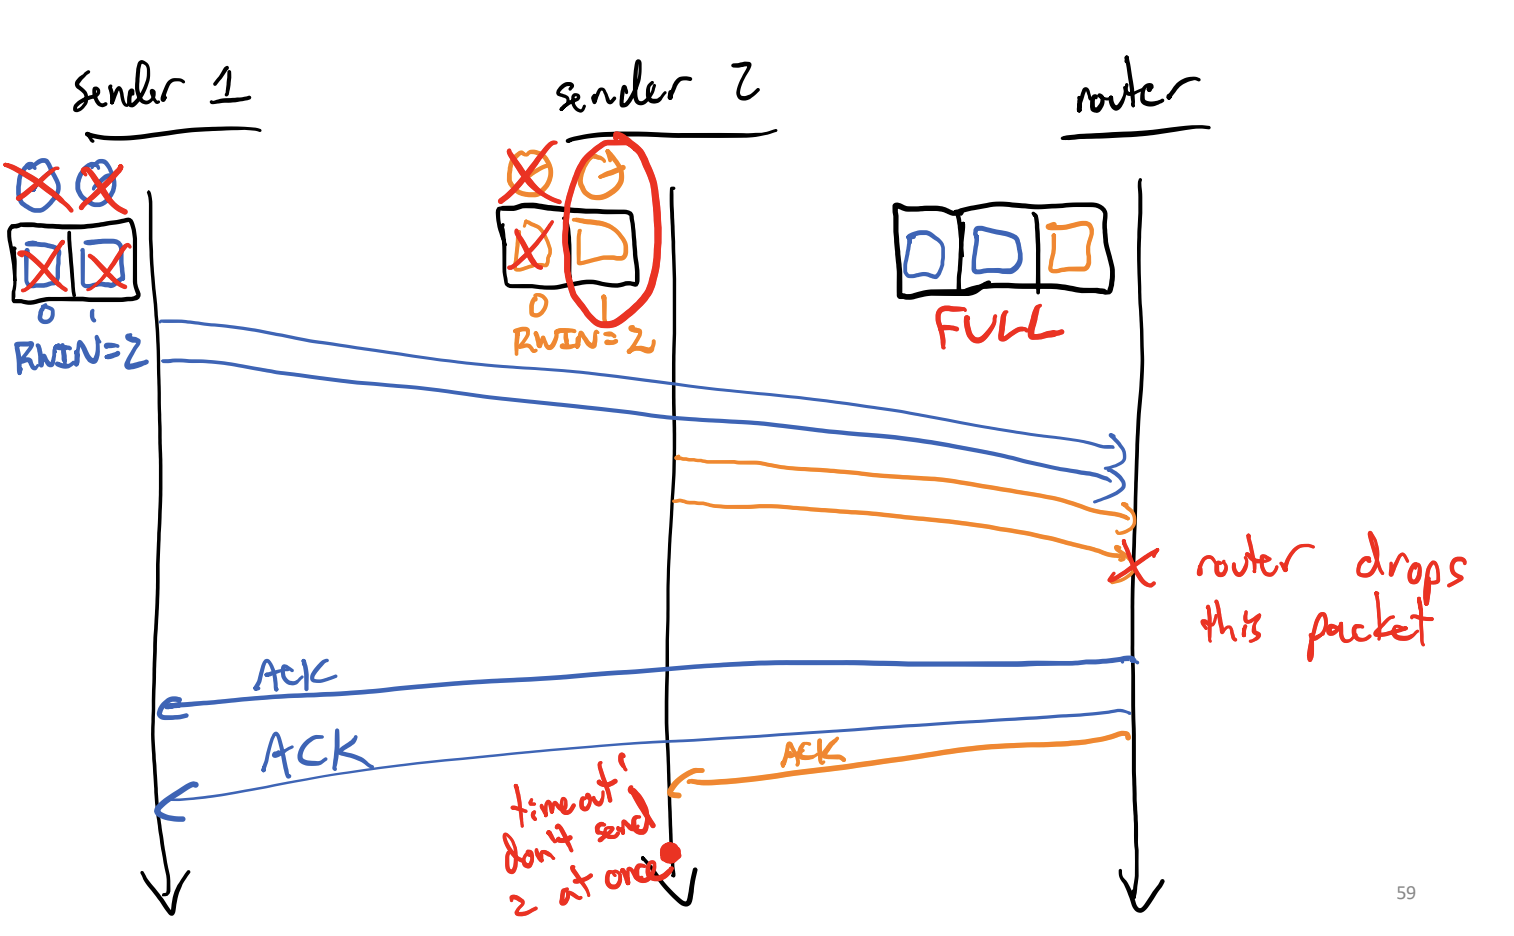 sender 1
sender 2
router
0 1
RWIN=2
0 1
RWIN=2
FULL
router drops
this packet
ACK
ACK
ACK
timeout!
don't send
2 at once
59